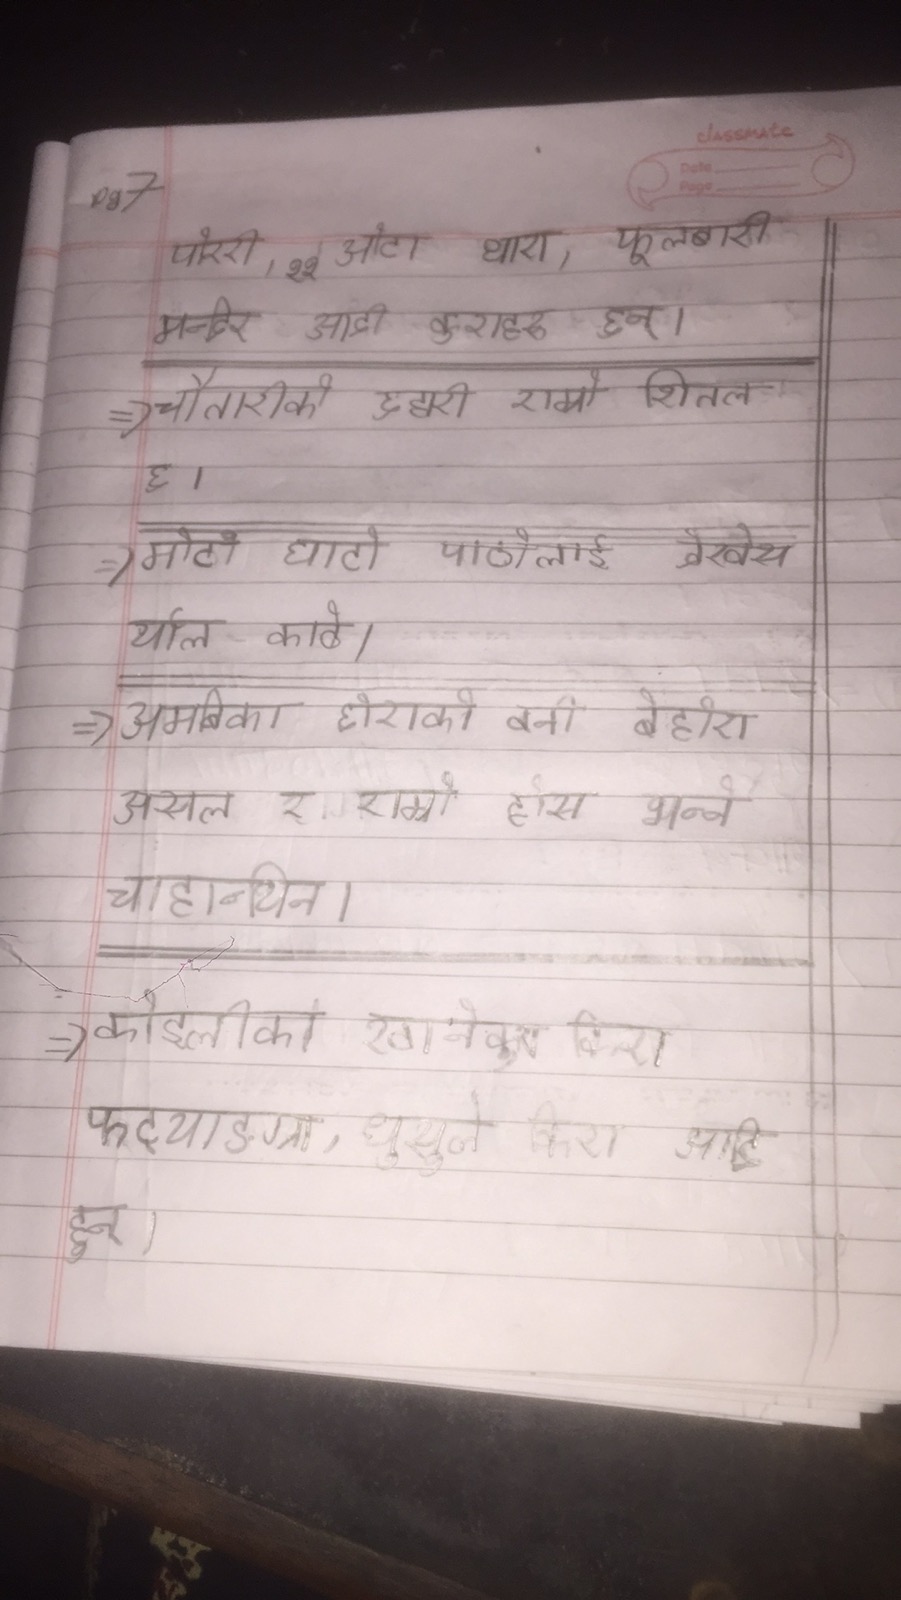 classmate
Date
Page
pg 7
पोखरी, २२ ओटा धारा, फूलबारी
मन्दिर आदी कुराहरु हुन्।
⇒ चौतारीको छहारी राम्रो शितल
छ ।
⇒ मोटो घाटो पाठोलाई देखेस
र्याल काढे।
⇒ अमबिका छोराको बनी बेहोरा
असल र राम्रो होस भन्ने
चाहान्थिन।
⇒ कोइलीको खानेकुरा किरा
फट्याङग्रा, धुसुने किरा आदि
हुन् ।